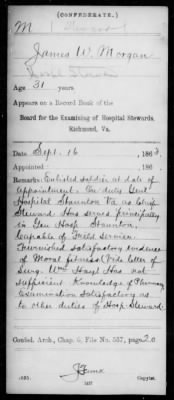 (CONFEDERATE.)
M
James W. Morgan
Hosp. Steward
Age 31 years
Appears on a Record Book of the
Board for the Examining of Hospital Stewards,
Richmond, Va.
Date Sept. 16, 1863
Appointed , 186 .
Remarks: Enlisted soldier at date of
appointment. On duty Genl
Hospital Staunton Va as Chief
Steward Has served principally
in Gen Hosp Staunton.
Capable of Field Service.
Furnished satisfactory evidence
of Moral fitness Vide letter of
Surg. Wm Hay! Has not
sufficient Knowledge of Pharmacy
Examination Satisfactory as
to other duties of Hosp Steward.
Confed. Arch., Chap. 6, File No. 557, page 20
Copyist.